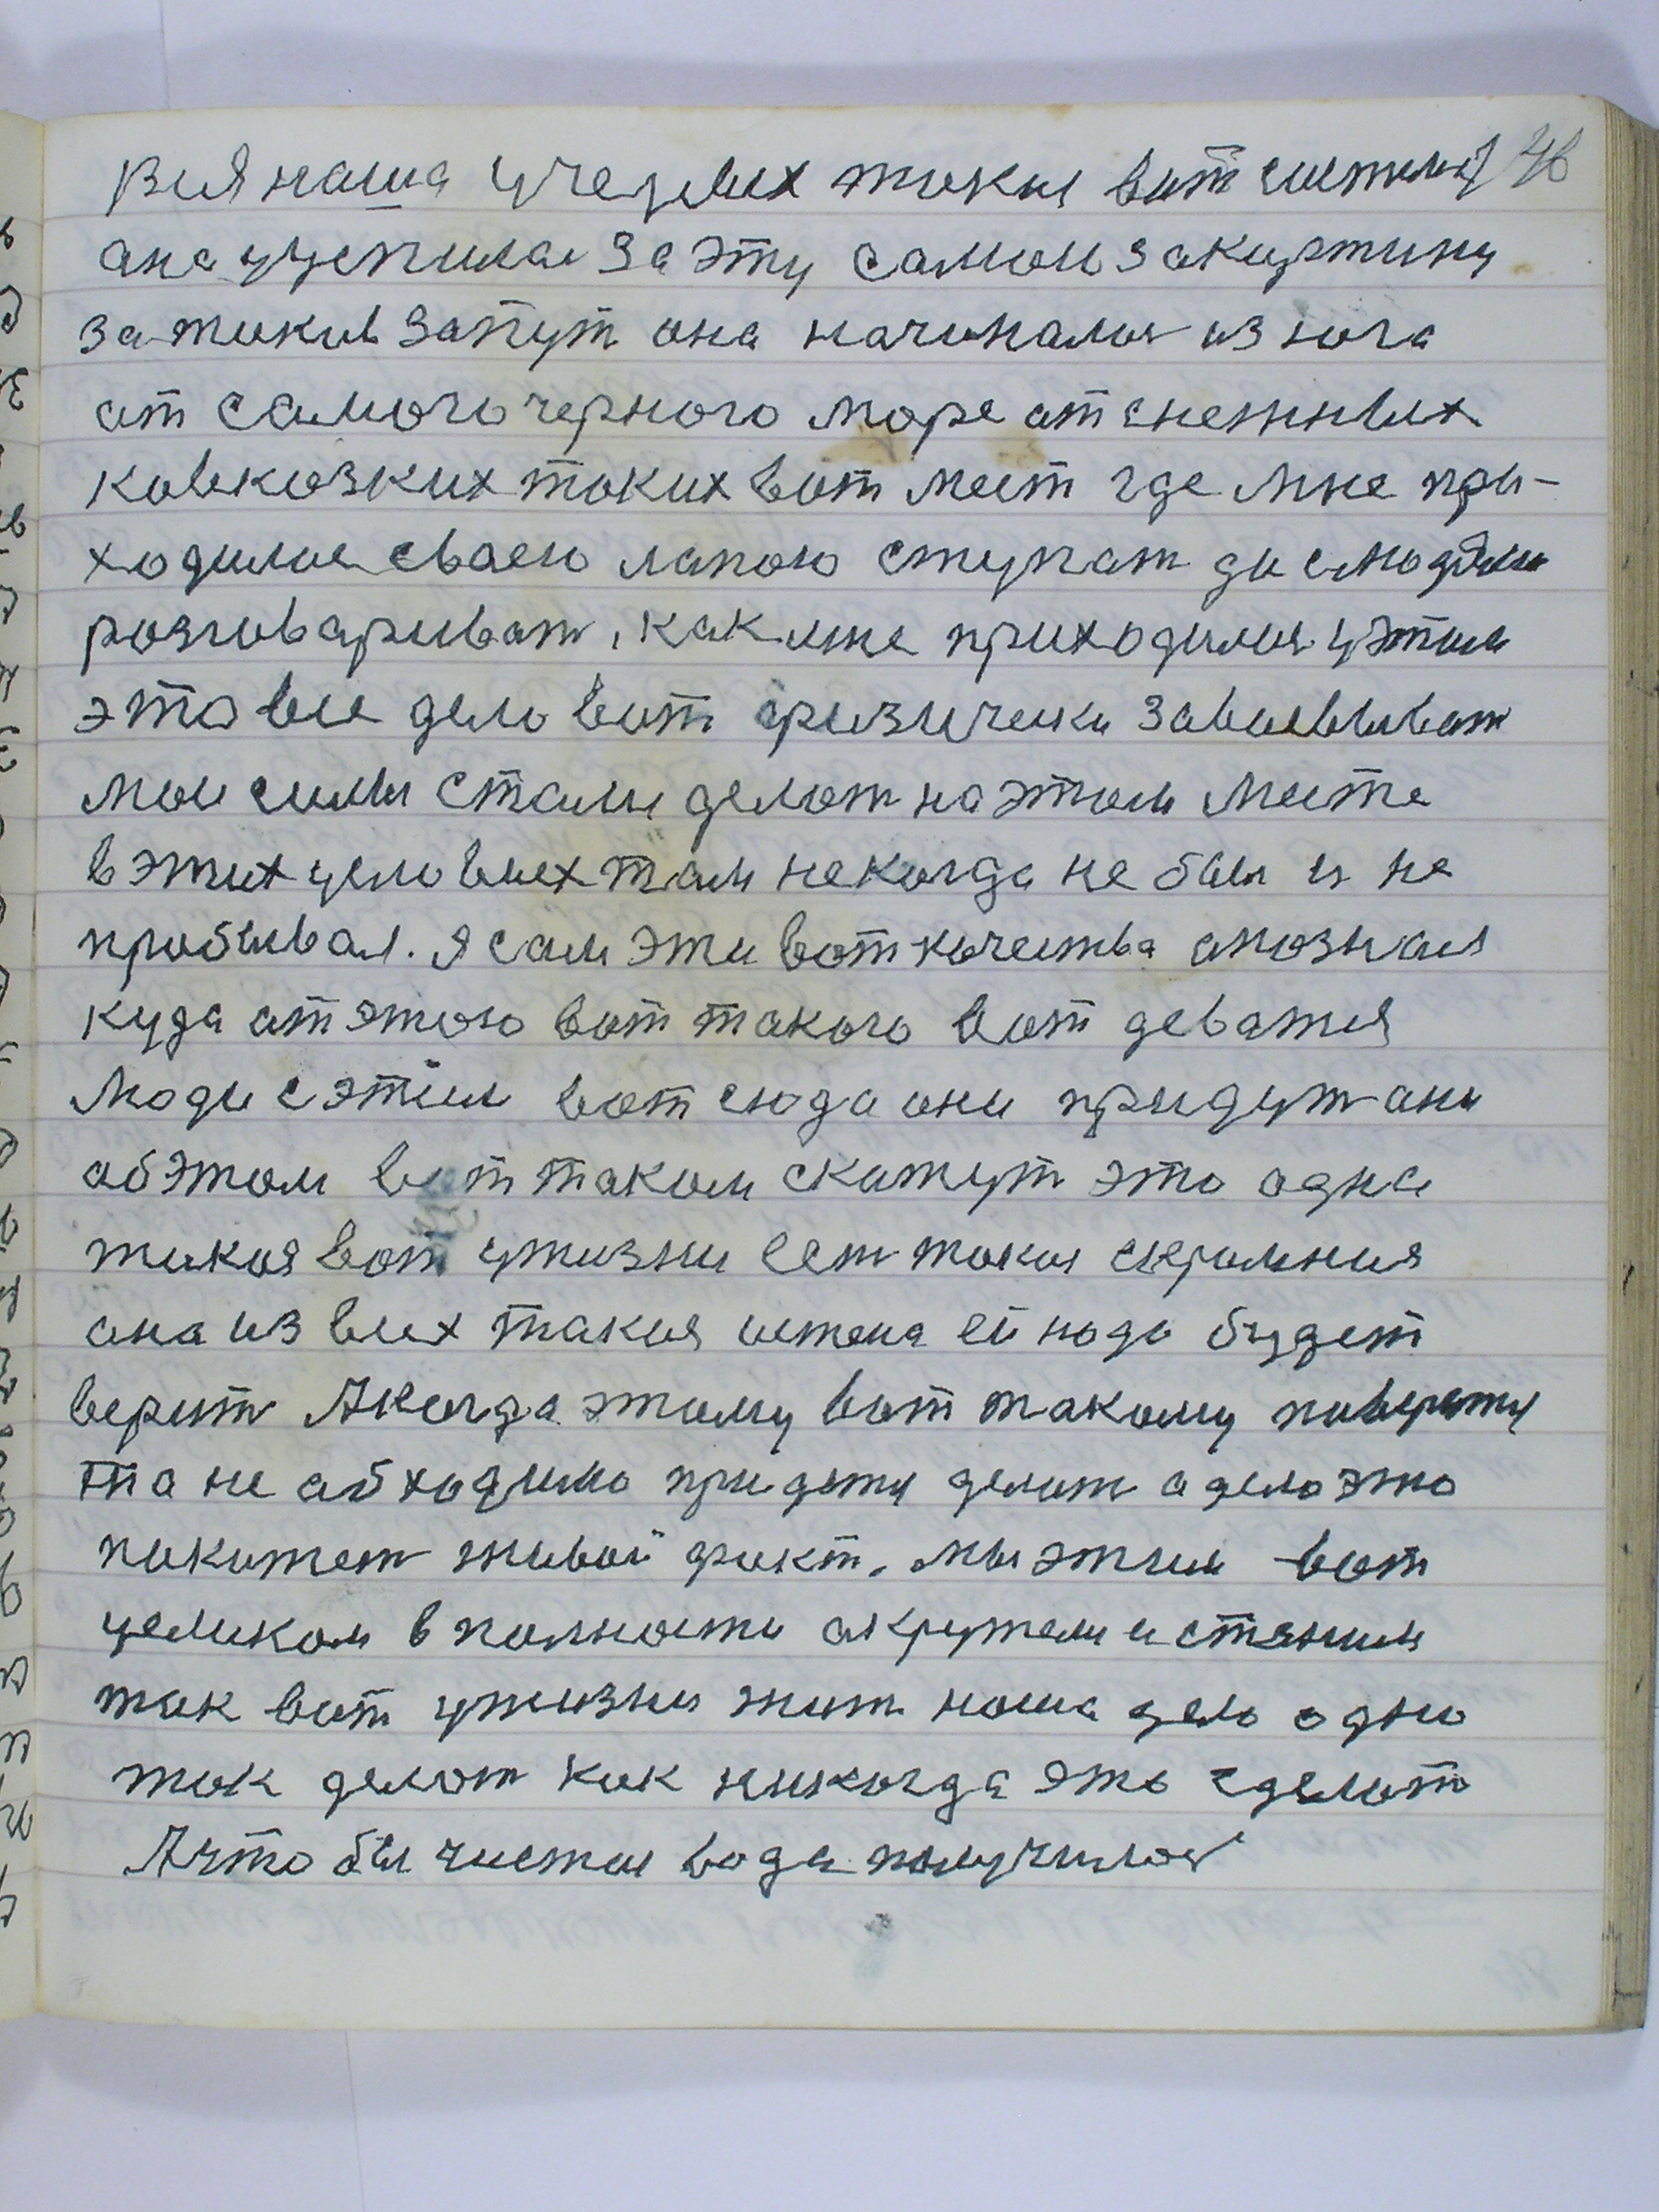 Вся наша учезвых такая вот система 46
ана уцепилас за эту самои за картину
за такив запут она началася из юга
ат самого черного море ат снежных
кавказких таких вот мест где мне при-
ходилося сваею лапою ступат да слюдями
розговариват, как мне приходилося у этим
это все дело вот физически завоевыват
Мои силы стали делат на этом месте
в этих условиех там некогда не был и не
пробывал. я сам эти вот качества опознал
куда ат этого вот такого вот деватся
Люди с этим вот сюда они придут они
об этом вот таком скажут это одна
такоя вот ужизни ест такая скромная
она из всех такия истена ей надо будет
верит А когда этому вот такому поверят
та не абходимо придется делат а дело это
покажет живой факт. Мы этим вот
целиком в полности акружели и станим
так вот ужизни жит наша дело одно
так делат как никогда это сделат
А что бы чистая вода получилося